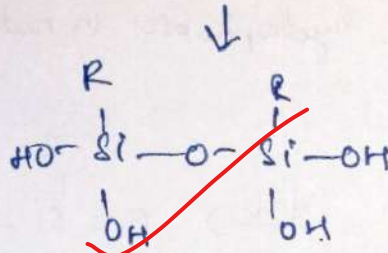 R R
HO-Si-O-Si-OH
OH OH